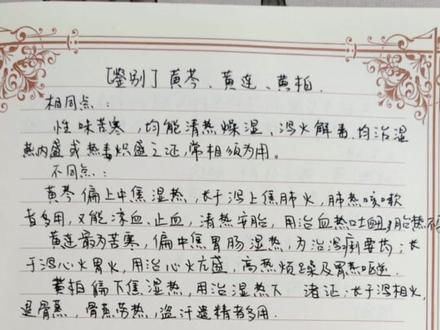 [鉴别] 黄芩、黄连、黄柏.
相同点:
性味苦寒,均能清热燥湿、泻火解毒,均治湿
热内盛或热毒炽盛之证,常相须为用。
不同点:
黄芩偏上中焦湿热,长于泻上焦肺火,肺热咳嗽
者多用,又能凉血、止血,清热安胎,用治血热吐衄、胎热不
黄连最为苦寒,偏中焦胃肠湿热,为治泻痢要药;长
于泻心火胃火,用治心火亢盛,高热烦躁及胃热呕逆.
黄柏偏下焦湿热,用治湿热下 诸证;长于泻相火,
退骨蒸,骨蒸劳热,盗汗遗精者多用.